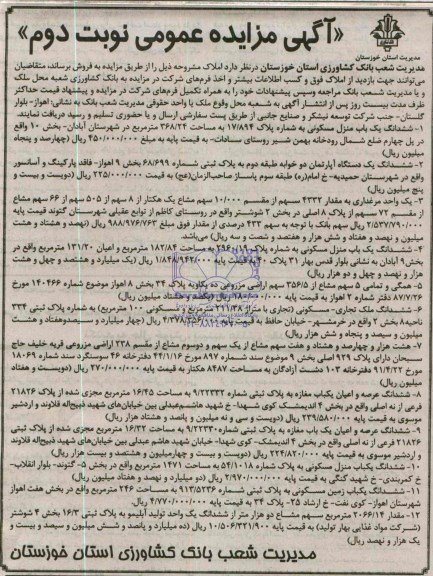 «آگهی مزایده عمومی نوبت دوم»
مدیریت استان خوزستان
مدیریت شعب بانک کشاورزی استان خوزستان درنظر دارد املاک مشروحه ذیل را از طریق مزایده به فروش برساند، متقاضیان
می‌توانند جهت بازدید از املاک فوق و کسب اطلاعات بیشتر و اخذ فرم‌های شرکت در مزایده به بانک کشاورزی شعبه محل ملک
و یا مدیریت شعب بانک مراجعه وسپس پیشنهادات خود را به همراه تکمیل فرم‌های شرکت در مزایده و پیشنهاد قیمت حداکثر
ظرف مدت بیست روز پس از انتشار آگهی به شعبه محل وقوع ملک یا واحد حقوقی مدیریت شعب بانک به نشانی: اهواز- بلوار
گلستان- جنب شرکت توسعه نیشکر و صنایع جانبی از طریق پست سفارشی ارسال و یا حضوری تسلیم و رسید دریافت نمایند.
۱- ششدانگ یک باب منزل مسکونی به شماره پلاک ۱۷/۸۹۴ به مساحت ۳۶۸/۲۴ مترمربع در شهرستان آبادان- بخش ۱۰ واقع
در پل چهارم ضلع شمال رودخانه بهمن شیر روستای سادات- به قیمت پایه به مبلغ ۴۵۰/۰۰۰/۰۰۰ ریال (چهارصد و پنجاه
میلیون ریال)
۲- ششدانگ یک دستگاه آپارتمان دو خوابه طبقه دوم به پلاک ثبتی شماره ۶۸/۶۹۹ بخش ۹ اهواز- فاقد پارکینگ و آسانسور
واقع در شهرستان حمیدیه- خ امام(ره) طبقه سوم پاساژ صاحب‌الزمان(عج) به قیمت ۲۲۵/۰۰۰/۰۰۰ ریال (دویست و بیست و
پنج میلیون ریال)
۳- یک واحد مرغداری به مقدار ۴۳۳۲ سهم از مقسم ۱۰/۰۰۰ سهم مشاع یک هکتار از ۸ سهم از ۵۰۵ سهم از ۶۶ سهم مشاع
از مقسم ۷۲ سهم از پلاک ۸ اصلی در بخش ۲ شوشتر واقع در روستای کاظم از توابع عقیلی شهرستان گتوند قیمت پایه
۲/۵۳۷/۷۹۰/۰۰۰ ریال سهم بانک با توجه به سهم ۴۳۳ درصدی از مقدار فوق مبلغ ۹۸۸/۹۷۶/۷۶۳ ریال (نهصد و هشتاد و هشت
میلیون و نهصد و هفتاد و شش هزار و هفتصد و شصت و سه ریال) می‌باشد.
۴- ششدانگ یک باب منزل مسکونی به شماره پلاک مساحت ۱۸۲/۸۴ مترمربع و اعیان ۱۳۱/۲۰ مترمربع واقع در
بخش ۹ آبادان به نشانی بلوار قدس بهار ۳۱ پلاک ۴۰ قیمت پایه ۱/۸۴۸/۹۴۲/۰۰۰ ریال (یک میلیارد و هشتصد و چهل و هشت
هزار و نهصد و چهل و دو هزار ریال)
۵- همگی و تمامی ۵ سهم مشاع از ۳۵۶/۵ سهم اراضی مزروعی ده پلاک ۳۴ بخش ۸ اهواز موضوع شماره ۱۴۰۴۶۶ مورخ
۸۷/۷/۲۶ دفتر شماره ۲ اهواز به قیمت پایه
۶- ششدانگ یک ملک تجاری- مسکونی (تجاری با متراژ ۲۱۱/۳۸ مترمربع و مسکونی ۱۰۰ مترمربع) به شماره پلاک ثبتی ۳۳۴
ناحیه ۸ بخش ۲ واقع در خرمشهر- خیابان حافظ به قیمت ریال (چهار میلیارد و سیصدوهفتاد و هشت
میلیون و سیصد و پنجاه و شش هزار ریال)
۷- هشت هزار و چهارصد و هشتاد و هفت سهم مشاع از یک سهم و دوسوم مشاع از مقسم ۲۳۸ اراضی مزروعی قریه خلیف حاج
سبحان دارای پلاک ۹۲۹ اصلی بخش ۹ موضوع سند شماره ۸۹۷ مورخ ۴۴/۱/۱۶ دفترخانه ۴۶ سوسنگرد سند شماره ۱۸۰۶۹
مورخ ۹۱/۴/۲۲ دفترخانه ۱۰۳ دشت آزادگان به مساحت ۸۴۸۷ هکتار به قیمت پایه ۲۷۰/۰۰۰/۰۰۰ ریال (دویست و هفتاد
میلیون ریال)
۸- ششدانگ عرصه و اعیان یکباب مغازه به پلاک ثبتی شماره ۹/۲۲۳۳۲ به مساحت ۱۶/۴۵ مترمربع مجزی شده از پلاک ۲۱۸۲۶
فرعی از نه اصلی واقع در بخش ۴ اندیمشک کوی شهدا- خ شهید هاشم‌عبدلی بین خیابان‌های شهید ذبیح‌اله قلاوند و اردشیر
موسوی به قیمت پایه ۲۳۹/۵۸۰/۰۰۰ ریال (دویست و سی و نه میلیون و پانصد و هشتاد هزار ریال)
۹- ششدانگ عرصه و اعیان یک باب مغازه به پلاک ثبتی شماره ۹/۲۲۳۳۰ به مساحت ۱۶/۳۲ مترمربع مجزی شده از پلاک ثبتی
۲۱۸۲۶ فرعی از نه اصلی واقع در بخش ۴ اندیمشک- کوی شهدا- خیابان شهید هاشم عبدلی بین خیابان‌های شهید ذبیح‌اله قلاوند
و اردشیر موسوی به قیمت پایه ۲۲۴/۸۲۰/۰۰۰ ریال (دویست و بیست و چهارمیلیون و هشتصد و بیست هزار ریال)
۱۰- ششدانگ یکباب منزل مسکونی به پلاک شماره ۵۴/۱۰۱۸ به مساحت ۱۴۷۱ مترمربع واقع در بخش ۵- گتوند- بلوار انقلاب-
خ کمربندی- خ شهید گنگی به قیمت پایه ۲/۹۷۰/۰۰۰/۰۰۰ ریال (دو میلیارد و نهصد و هفتاد میلیون ریال)
۱۱- ششدانگ یکباب زمین مسکونی به پلاک ثبتی شماره ۹۱۳/۵۲۳۶ به مساحت ۲۴۶ مترمربع واقع در بخش هفت اهواز
شهرستان اهواز- کوی نفت- خ ارشاد ۲۵- پلاک ۳۴ به قیمت پایه
۱۲- مقدار ۲۰۶۶/۱۴ مترمربع سرسهم مشاع از دو هزار متر از ششدانگ یک واحد تولید آبلیمو به پلاک ثبتی ۱۶/۳ بخش ۴ شوشتر
(شرکت مواد غذایی بهار تولید) به قیمت پایه ۱۰/۵۰۶/۳۲۱/۹۰۰ ریال (ده میلیارد و پانصد و شش میلیون و سیصد و بیست و
یک هزار و نهصد ریال)
مدیریت شعب بانک کشاورزی استان خوزستان